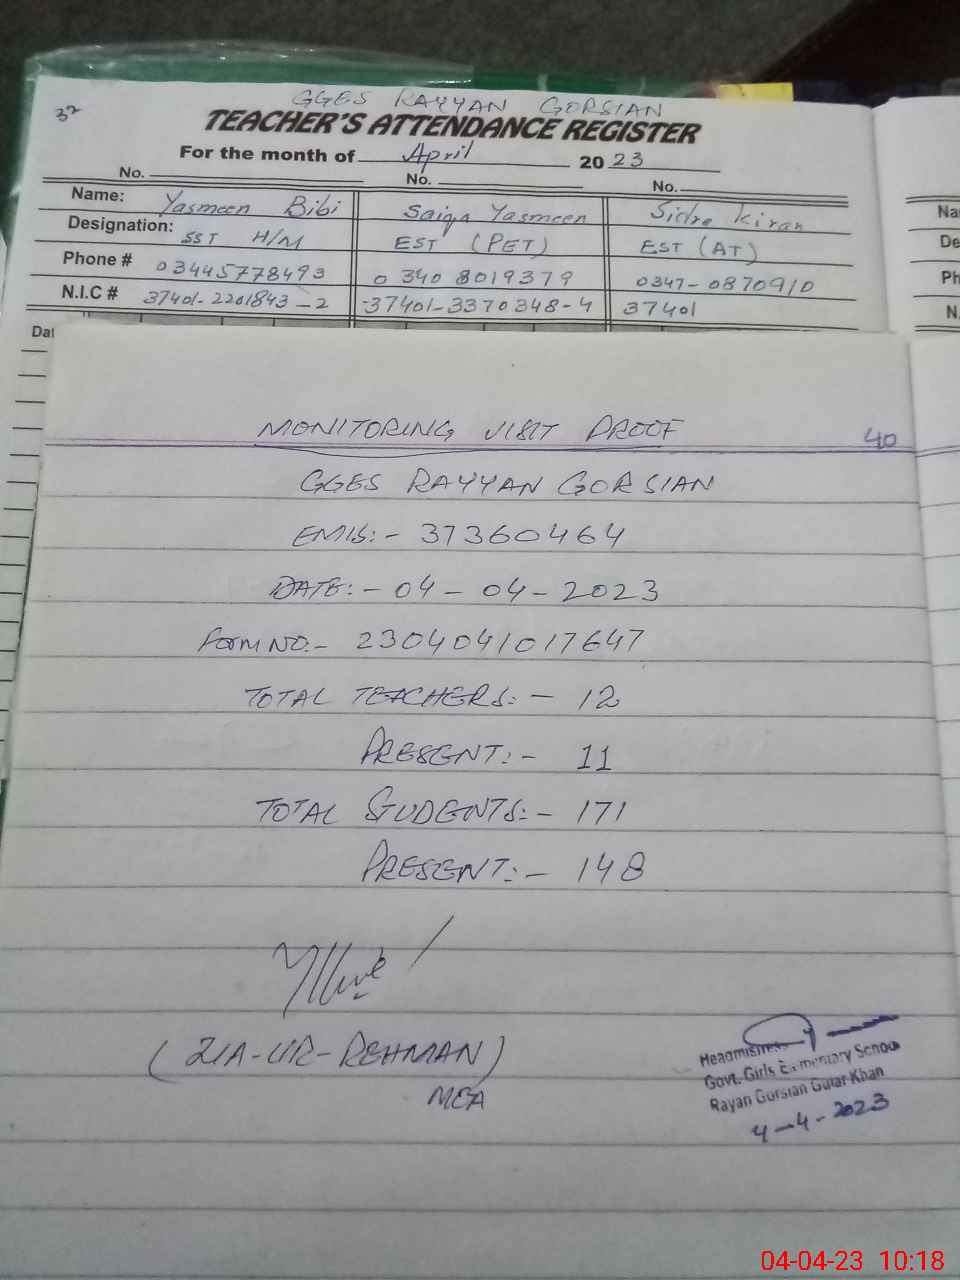 32
GGES RAYYAN GORSIAN
TEACHER'S ATTENDANCE REGISTER
For the month of April 2023
No. No. No.
Name: Yasmeen Bibi Saiqa Yasmeen Sidra Kiran
Designation: SST H/M EST (PET) EST (AT)
Phone # 03445778493 0340 8019379 0347-0870910
N.I.C # 37401-2201843-2 37401-3370348-4 37401
Na
De
Ph
N.
Dat
MONITORING VISIT PROOF
40
GGES RAYYAN GORSIAN
EMIS:- 37360464
DATE:- 04-04-2023
Form NO.- 2304041017647
TOTAL TEACHERS:- 12
PRESENT:- 11
TOTAL STUDENTS:- 171
PRESENT:- 148
(ZIA-UR-REHMAN)
MEA
Headmistress
Govt. Girls Elementary School
Rayan Gorsian Gujar Khan
4-4-2023
04-04-23 10:18